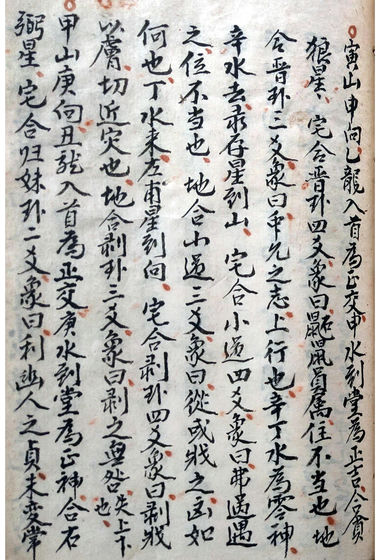 寅山申向乙龍入首為正交申水到堂為正吉合貪
狼星宅合晋卦四爻象曰鼫鼠貞厲位不当也地
合晋卦三爻象曰众允之志上行也辛丁水為零神
辛水去录存星到山宅合小过四爻象曰弗过遇
之位不当也地合小过三爻象曰從或戕之凶如
何也丁水来左甫星到向宅合剥卦四爻象曰剥戕
以膚切近灾也地合剥卦三爻象曰剥之無咎失上下也
甲山庚向丑龍入首為正交庚水到堂為正神合右
弼星宅合归妹卦二爻象曰利幽人之貞未变常